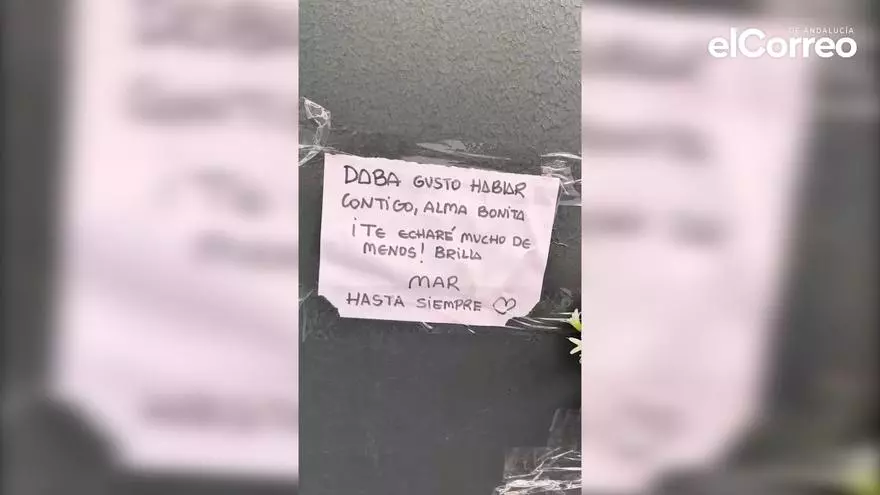 elCorreo
DE ANDALUCÍA
DABA GUSTO HABLAR
CONTIGO, ALMA BONITA
¡TE ECHARÉ MUCHO DE
MENOS! BRILLA
MAR
HASTA SIEMPRE